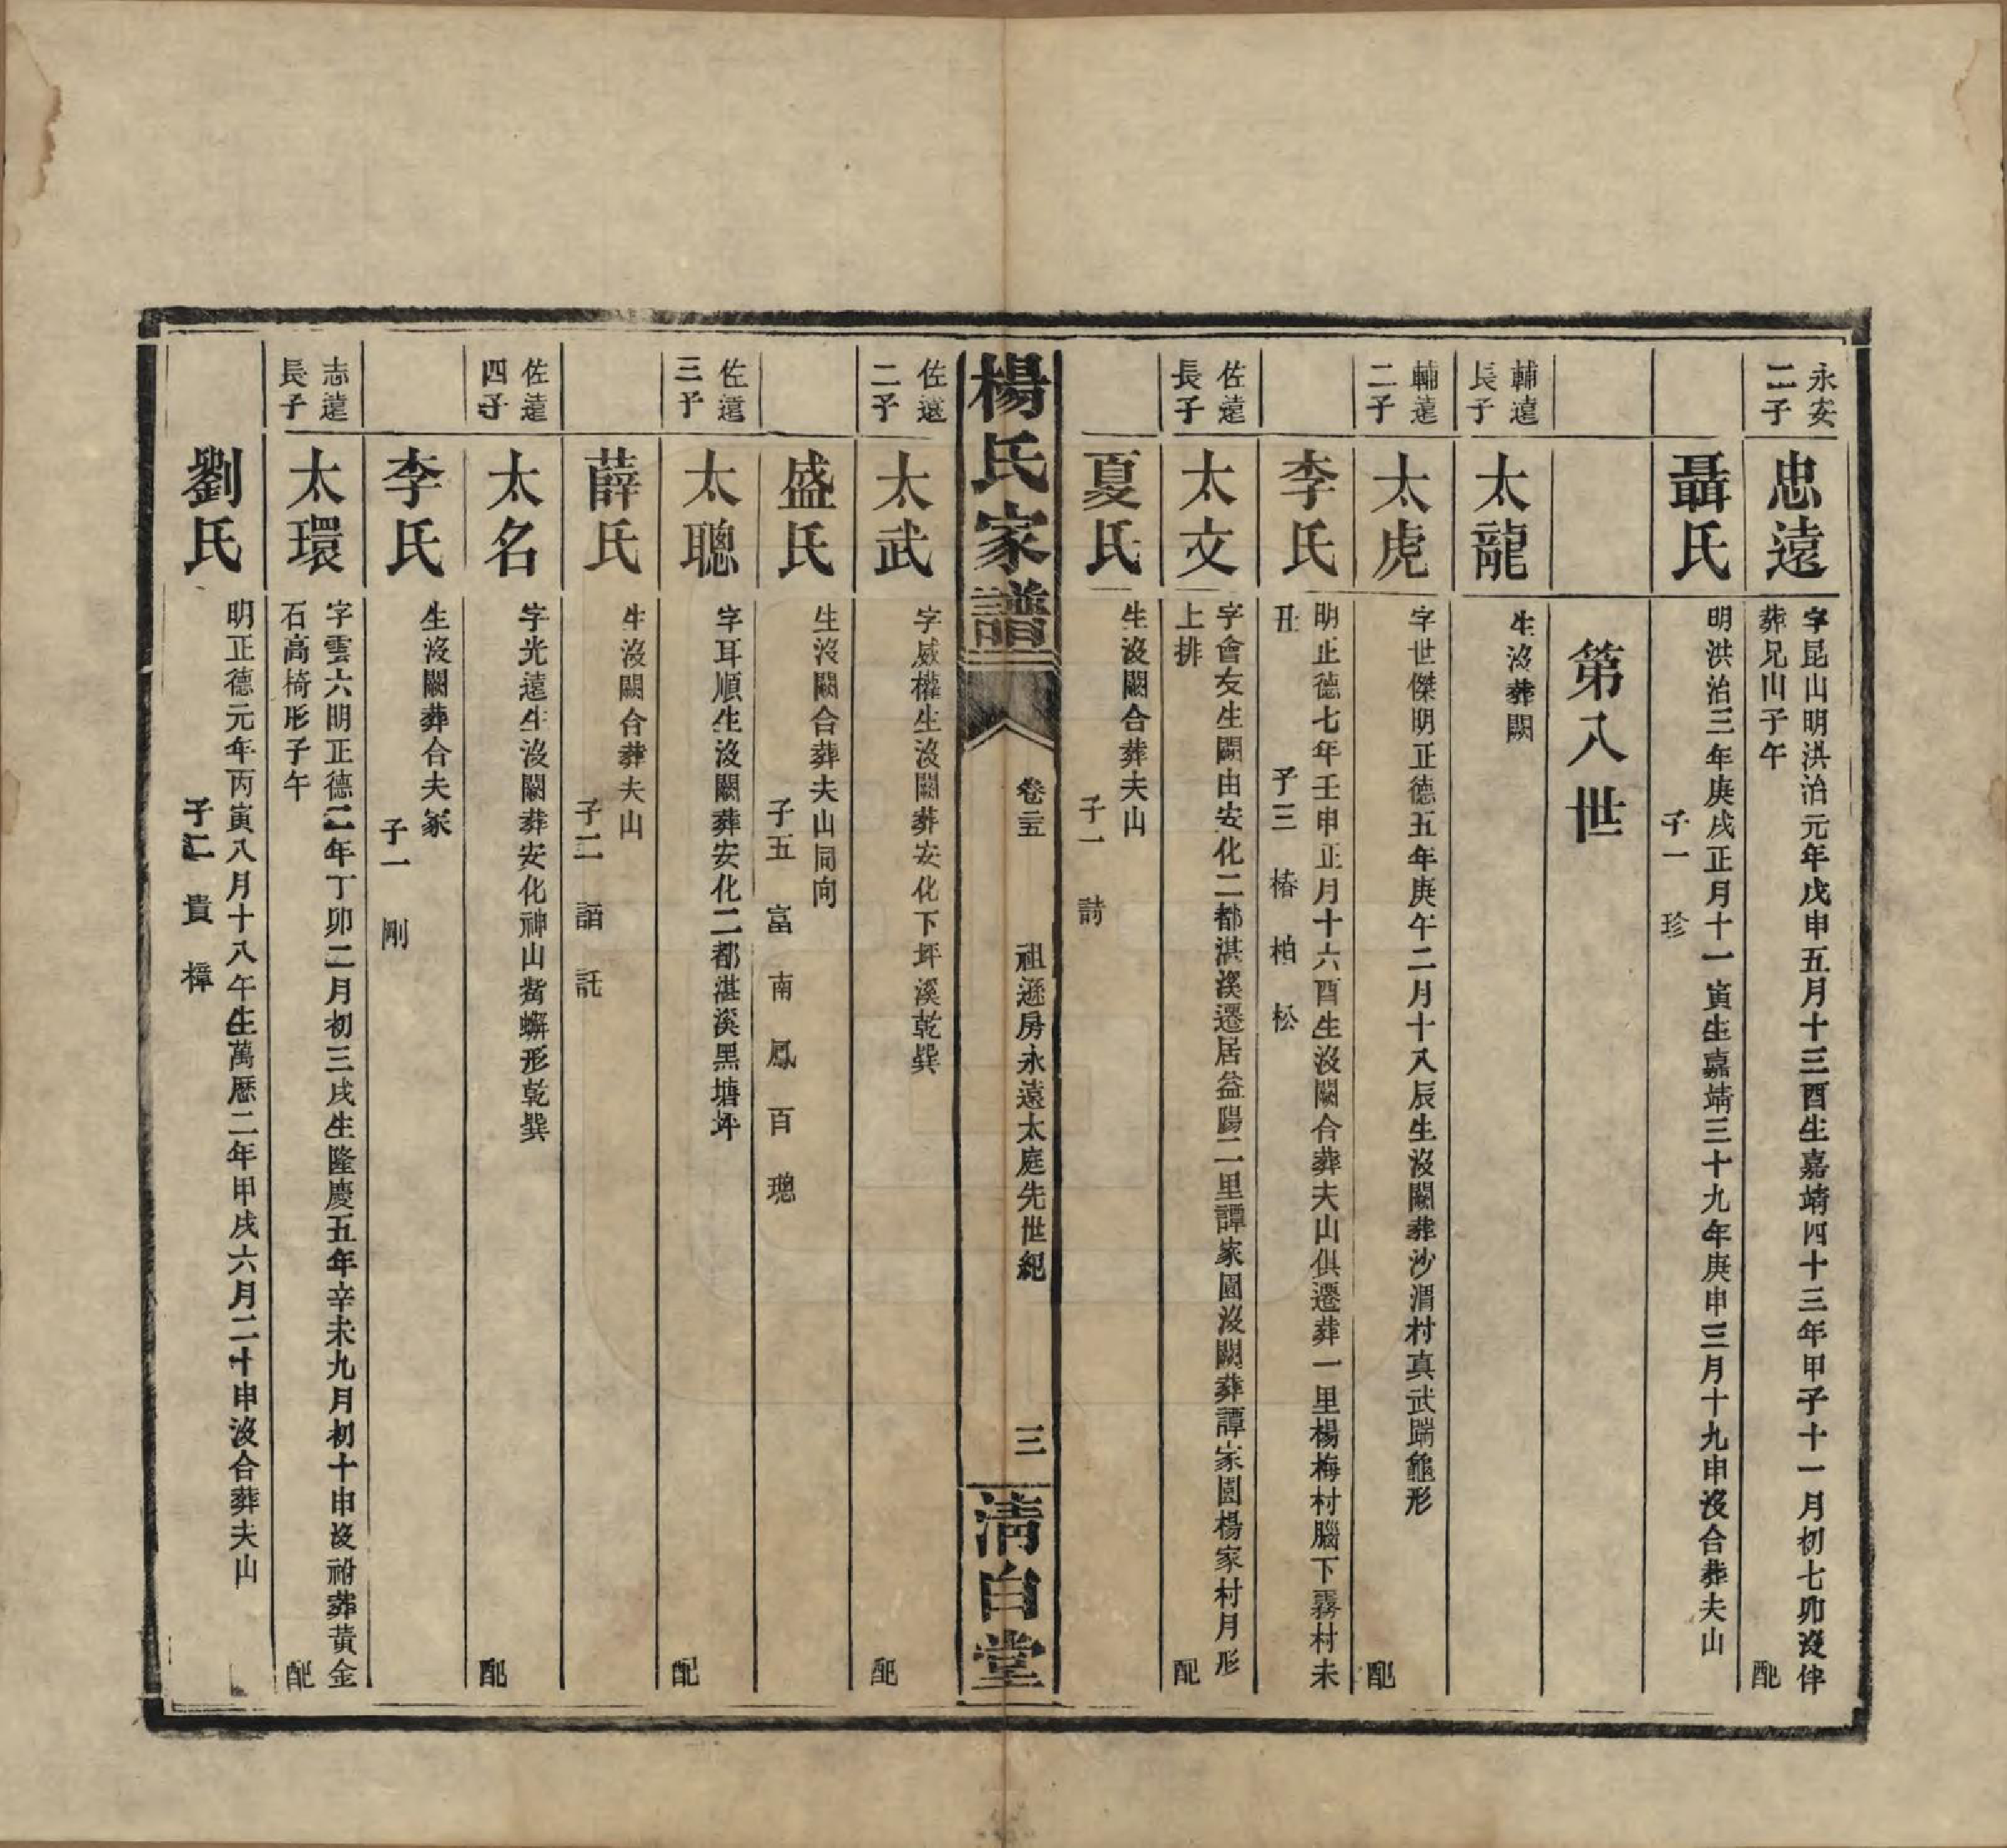 永安
二子
忠遠
字昆山明洪治元年戊申五月十三酉生嘉靖四十三年甲子十一月初七卯沒伴
葬兄山子午
配
聶氏
明洪治三年庚戌正月十一寅生嘉靖三十九年庚申三月十九申沒合葬夫山
子一　珍
第八世
輔遠
長子
太龍
生沒葬闕
輔遠
二子
太虎
字世傑明正德五年庚午二月十八辰生沒闕葬沙渭村真武踹龜形
配
李氏
明正德七年壬申正月十六酉生沒闕合葬夫山俱遷葬一里楊梅村腦下霧村未
丑
子三　椿　柏　松
佐遠
長子
太文
字會友生闕由安化二都湛溪遷居益陽二里譚家園沒闕葬譚家園楊家村月形
上排
配
夏氏
生沒闕合葬夫山
子一　請
楊氏家譜
卷二五
祖遜房永遠太庭先世紀
三
清白堂
佐遠
二子
太武
字威權生沒闕葬安化下坪溪乾巽
配
盛氏
生沒闕合葬夫山同向
子五　富　南　鳳　百　璁
佐遠
三子
太聰
字耳順生沒闕葬安化二都湛溪黑塘坪
配
薛氏
生沒闕合葬夫山
子二　詣　託
佐遠
四子
太名
字光遠生沒闕葬安化神山螃蠏形乾巽
配
李氏
生沒闕葬合夫冢
子一　剛
志遠
長子
太環
字雲六明正德二年丁卯二月初三戌生隆慶五年辛未九月初十申沒祔葬黃金
石高椅形子午
配
劉氏
明正德元年丙寅八月十八午生萬歷二年甲戌六月二十申沒合葬夫山
子二　貴　樟